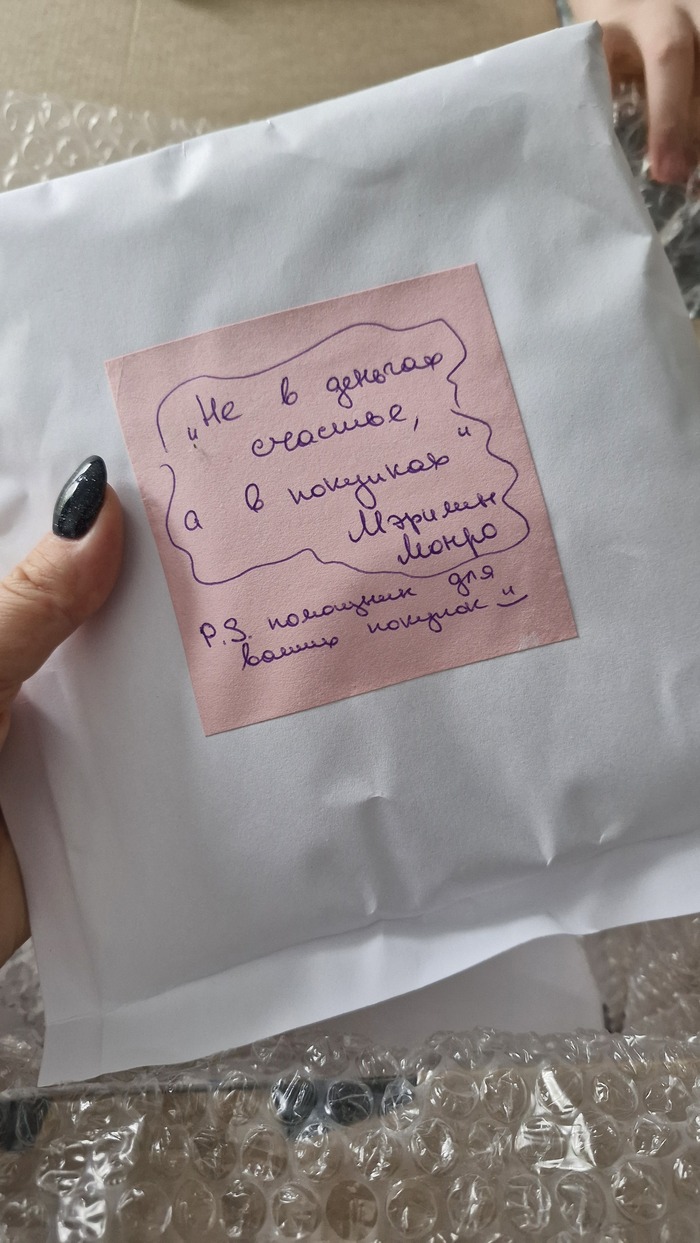 „Не в деньгах
счастье,
а в покупках"
Мэрилин
Монро
P.S. помощник для
ваших покупок